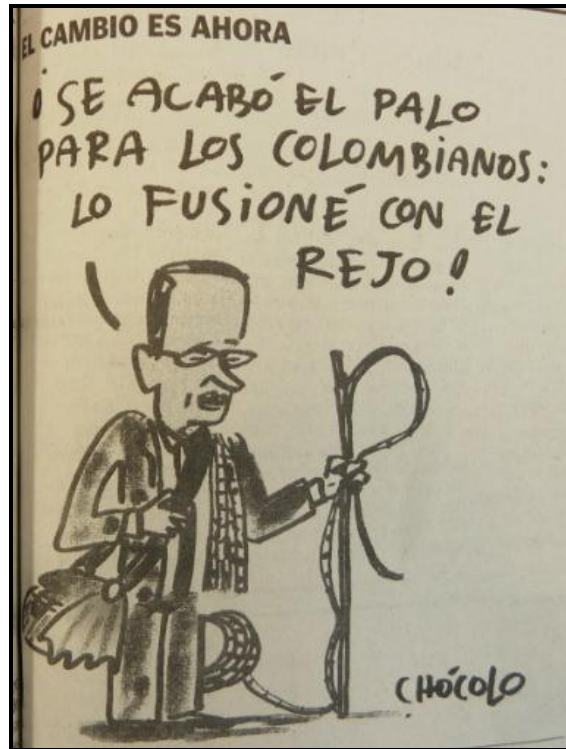 EL CAMBIO ES AHORA
¡SE ACABÓ EL PALO
PARA LOS COLOMBIANOS:
LO FUSIONÉ CON EL
REJO!
CHÓCOLO